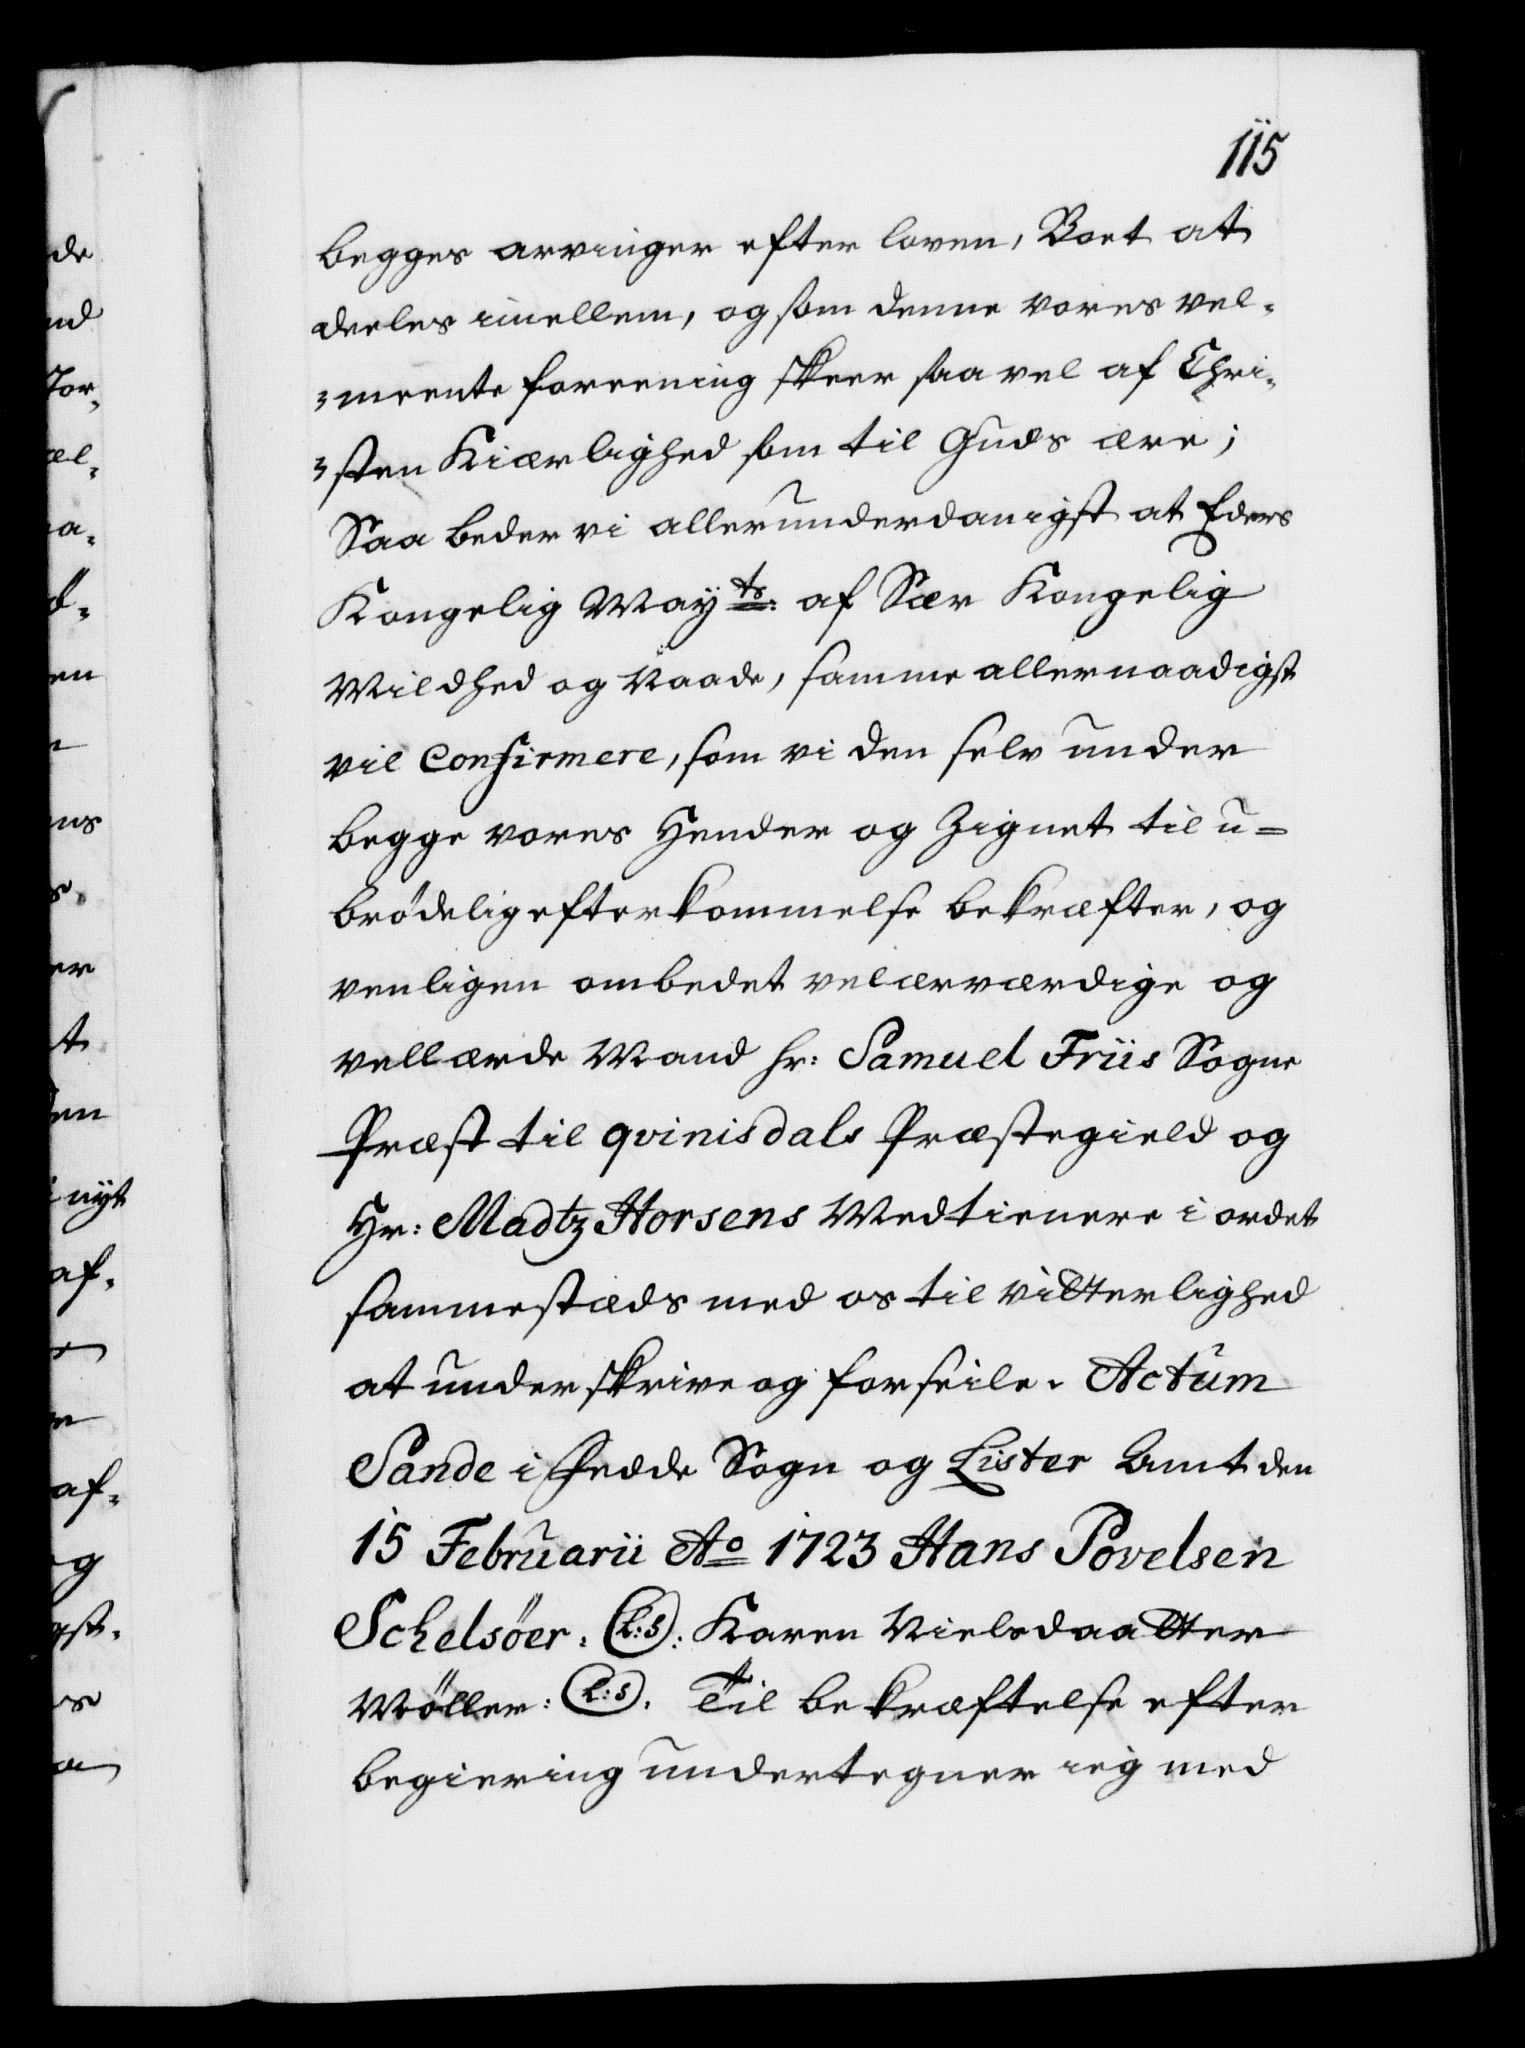 115
begges arvinger efter loven, Boet at
deeles imellem, og som denne vores vel-
meente foreening skeer saa vel af Chri-
sten Kiærlighed som til Guds ære;
Saa beder vi allerunderdanigst at Eders
Kongelig Mayts: af Sær Kongelig
Mildhed og Naade, samme allernaadigst
vil Confirmere, som vi den selv under
begge vores Hender og Zignet til u=
brødelig efterkommelse bekræfter, og
venligen ombedet velærværdige og
vellærde Mand hr: Samuel Friis Sogne
Præst til qvinisdals Præstegield og
Hr: Madtz Horsens Medtienere i ordet
sammestæds med os til vitterlighed
at underskrive og forseile. Actum
Sande i Fedde Sogn og Lister Amt den
15 Februarii Ao 1723 Hans Povelsen
Schelsöer. (L:S): Karen Nielsdaatter
Møller: (L:S). Til bekræftelse efter
begiering undertegner ieg med
de
nd
Tor-
el-
a-
d-
en
ns
s.
er
t
den
i nyt
af-
af-
g
gst.